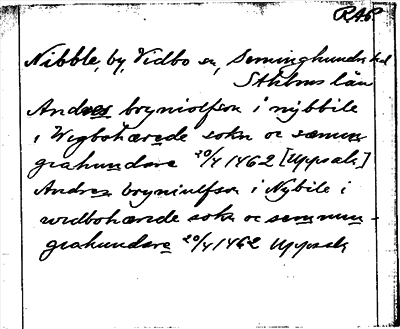 RAP
Nibble, by, Vidbo sn, Seminghundra hd
Sthlms län
Andres bryniolfson i nybbile
i Wegbohærede sokn oc sæmun
grahundare 20/4 1462 [Uppsala]
Andres bryniulfson i Nybile i
widbohærede sokn oc semmun-
grahundare 20/4 1462 Uppsala